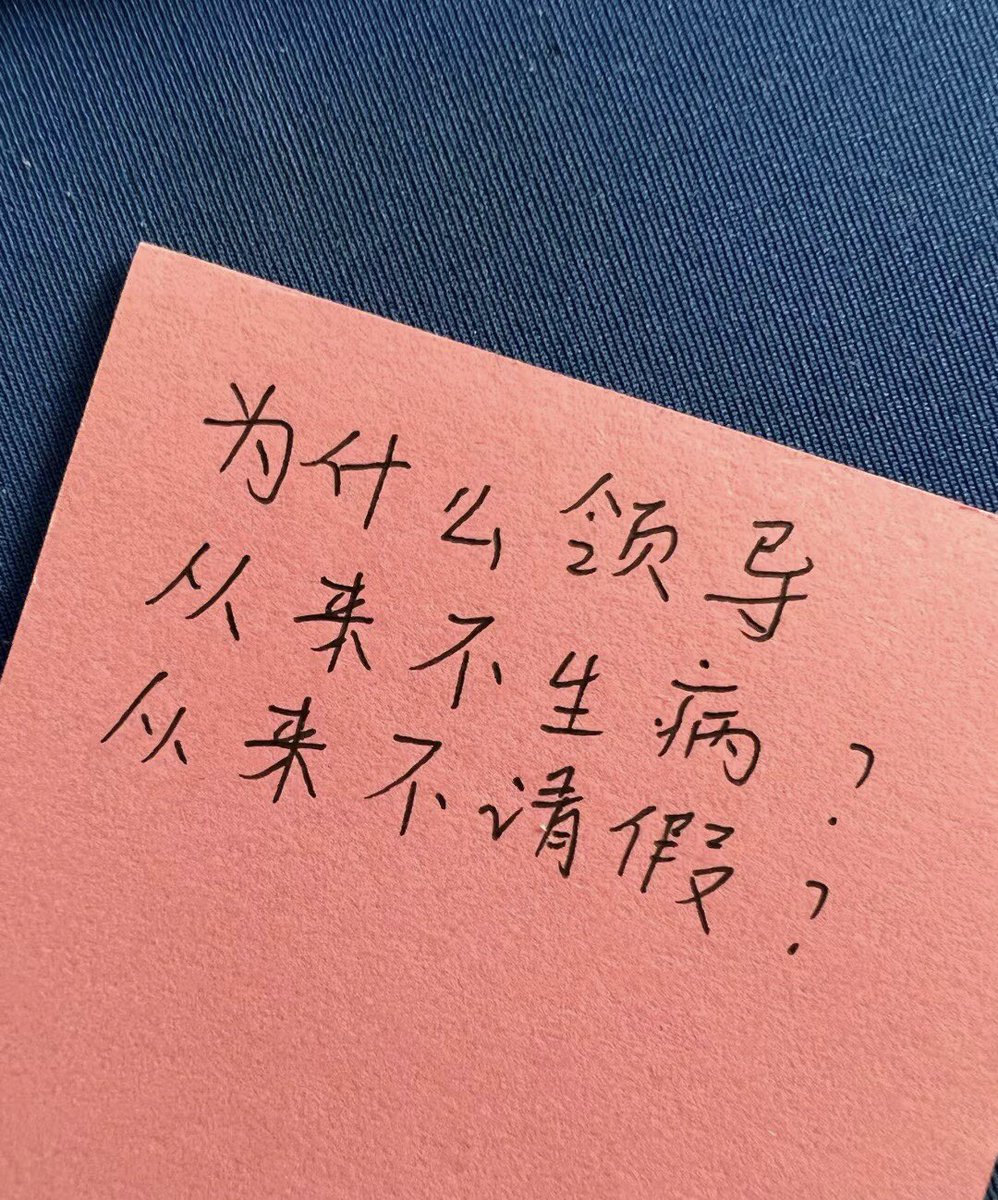 为什么领导
从来不生病?
从来不请假?